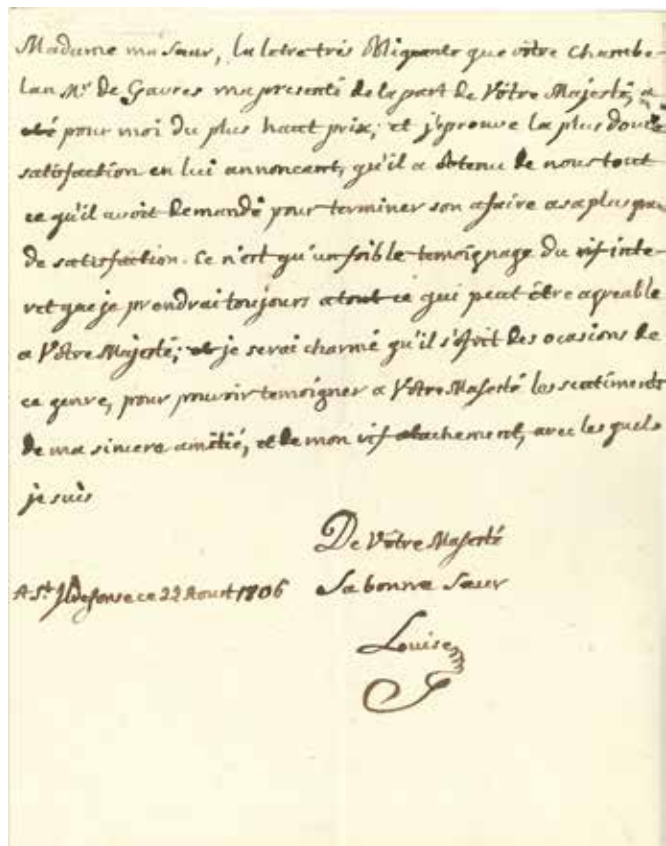 Madame ma Sœur, la letre trés obligante que vôtre Chambe-
lan Mr. De Gavres ma presenté de la part de Vôtre Majesté, a
eté pour moi du plus haut prix; et j'eprouve la plus douce
satisfaction en lui annoncant, qu'il a obtenu de nous tout
ce qu'il avoit demandé pour terminer son afaire a sa plus gran
de satisfaction. Ce n'est qu'un foible temoignage du vif inte-
ret que je prendrai toujours a tout ce qui peut étre agreable
a Vôtre Majesté; et je serai charmé qu'il s'ofrit des ocasions de
ce genre, pour pouvoir temoigner a Vôtre Majesté les sentiments
de ma sincere amitié, et de mon vif atachement, avec les quels
je suis
De Vôtre Majesté
A St. Ildefonse ce 22 Aoust 1806 Sa bonne Sœur
Louise